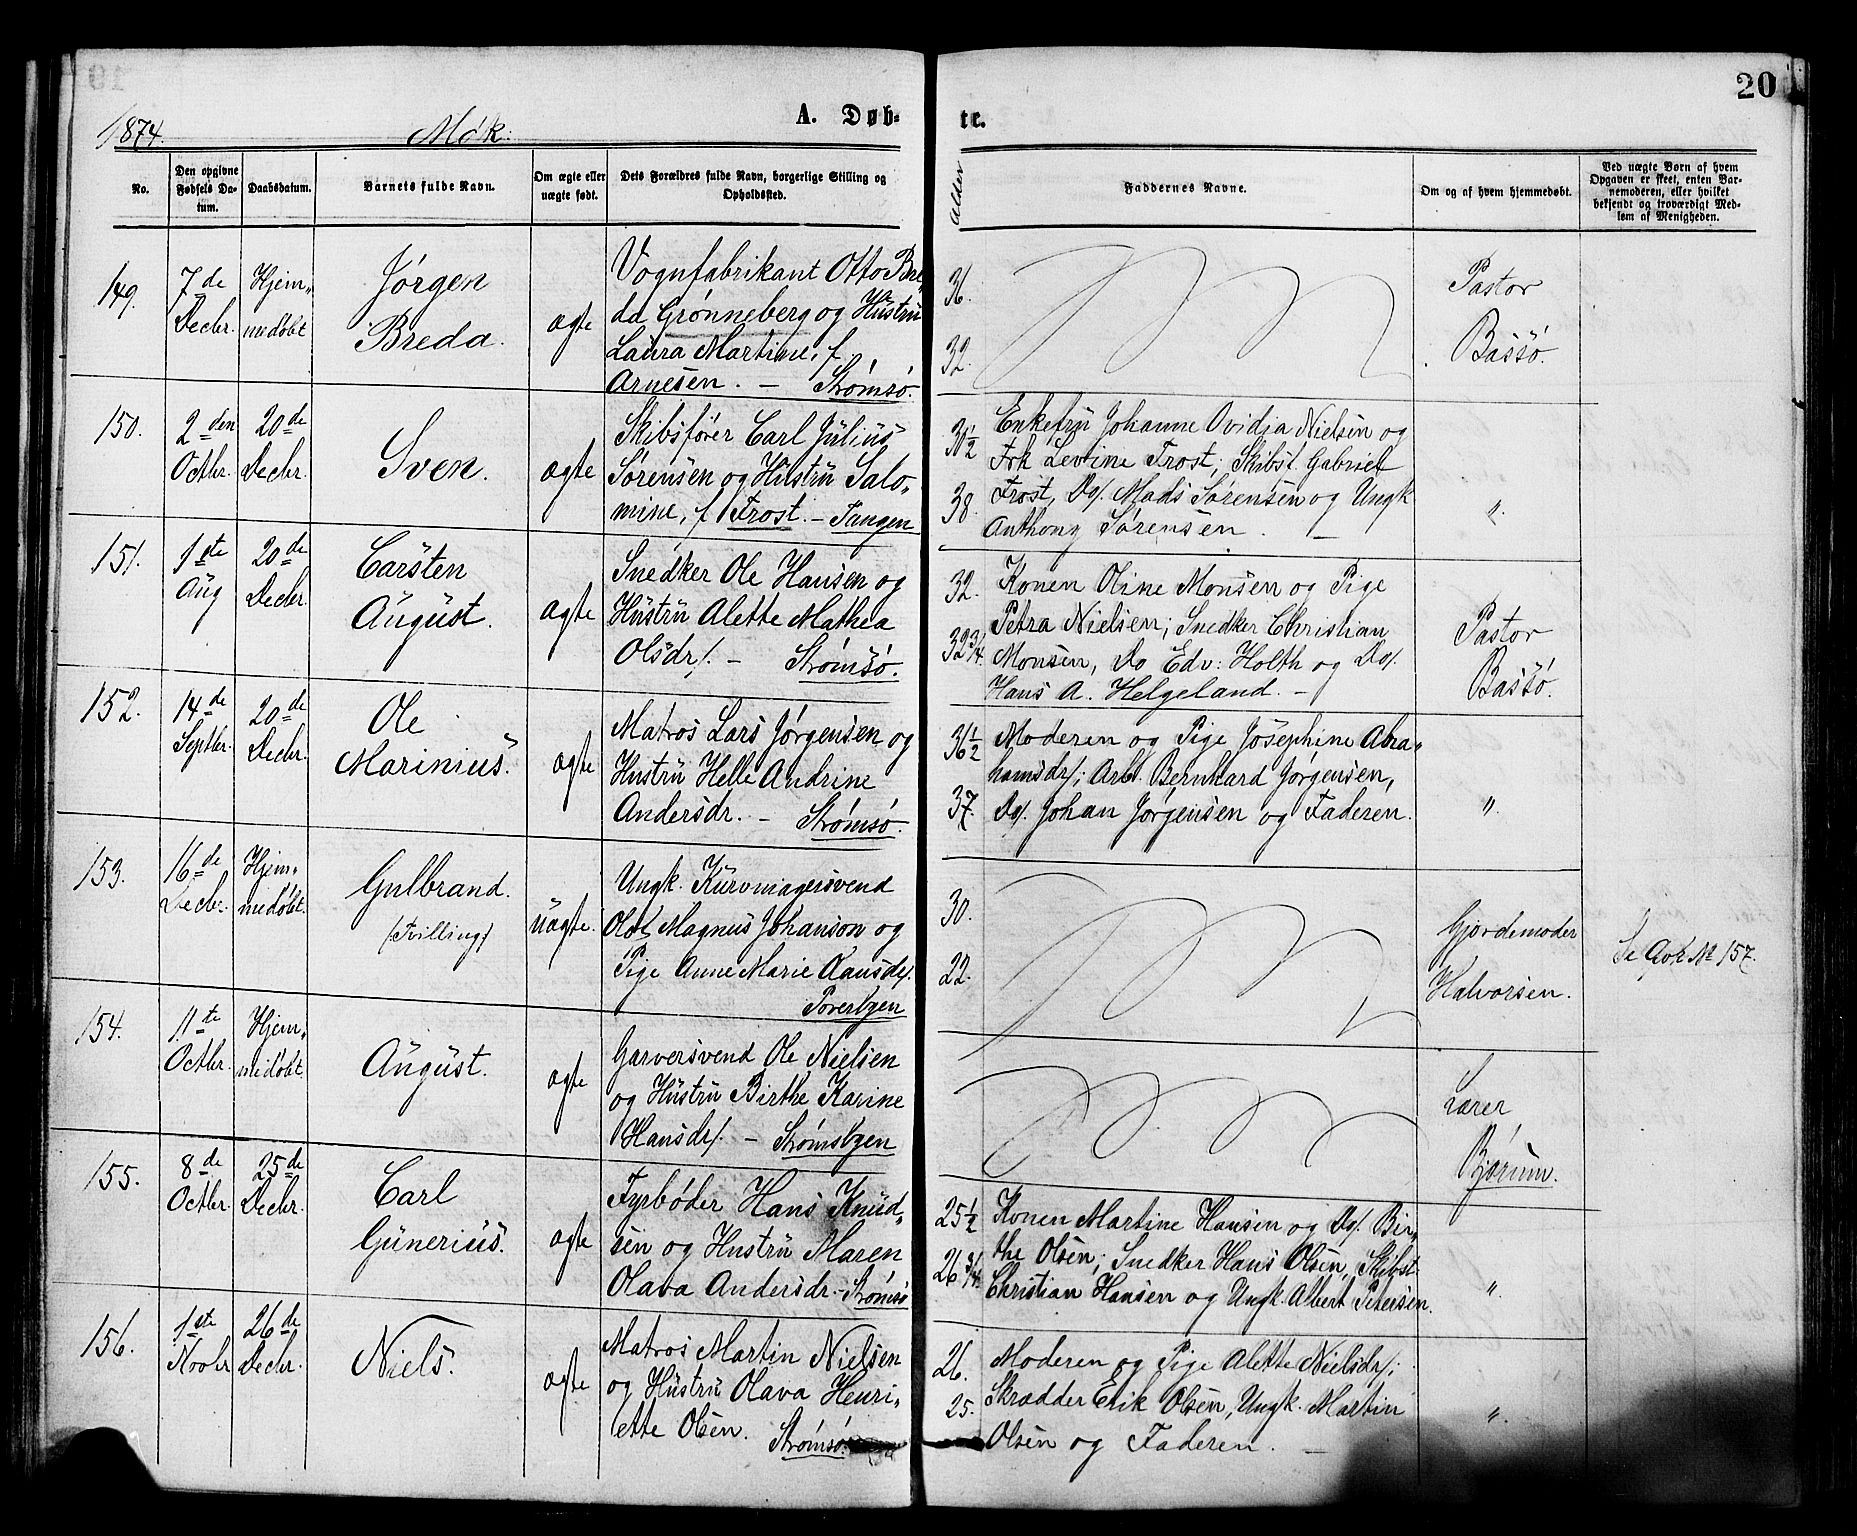 20
1874.
Mók:
A. Døb-
te.
No.
Den opgivne
Fødsels Da-
tum.
Daabsdatum.
Barnets fulde Navn.
Om ægte eller
uægte født.
Dets Forældres fulde Navn, borgerlige Stilling og
Opholdssted.
Alder
Faddernes Navne.
Om og af hvem hjemmedøbt.
Ved uægte Børn af hvem
Opgaven er skeet, enten Bar-
nemoderen, eller hvilket
bekjendt og troværdigt Med-
lem af Menigheden.
149.
7de
Decbr.
Hjem„
medöbt
Jörgen
Breda.
ægte
Vognfabrikant Otto Bre„
da Grönneberg og Hustru
Laura Martine, f.
Arnesen. — Strömsö.
36.
32.
Pastor
Bassö.
150.
2den
Octbr.
20de
Decbr.
Sven.
ægte
Skibsförer Carl Julius
Sörensen og Hustru Salo„
mine, f Frost. – Tangen
30½
38.
Enkefru Johanne Ovidia Nielsen og
Frk Levine Frost; Skibst. Gabriel
Frost, Do/. Mads Sörensen og Ungk
Anthony Sörensen. —
„
151.
1ste
Aug
20de
Decbr.
Carsten
August.
ægte
Snedker Ole Hansen og
Hustru Alette Mathea
Olsdr/. — Strömsö.
32.
32¾.
Konen Oline Monsen og Pige
Petra Nielsen; Snedker Christian
Monsen, Do Edv: Holth og Do/.
Hans A. Helgeland. —
Pastor
Bassö.
152.
14de
Septbr.
20de
Decbr.
Ole
Marinius.
ægte
Matros Lars Jörgensen og
Hustru Helle Andrine
Andersdr. — Strömsö.
36½
37.
Moderen og Pige Josephine Abra„
hamsdr/; Arb. Bernhard Jörgensen,
Do/. Johan Jörgensen og Faderen.
„
153.
16de
Decbr.
Hjem„
medöbt.
Gulbrand.
(Tvilling)
uægte.
Ungk. Kurvmagersvend
Olof Magnus Johanson og
Pige Anne Marie Hansdr/.
Toverbyen
30.
22.
Gjordemoder
Halvorsen.
Se No 157.
154.
11te
Octbr.
Hjem„
medöbt.
August.
ægte
Garversvend Ole Nielsen
og Hustru Birthe Karine
Hansdr/. — Strömsbyen
Lærer
Bjorum.
155.
8de
Octbr.
25de
Decbr.
Carl
Gunerius.
ægte
Fyrböder Hans Knud„
sen og Hustru Maren
Olava Andersdr. Strömsö
25½
26¾.
Konen Martine Hansen og Do/. Bir„
the Olsen; Snedker Hans Olsen, Skibst.
Christian Hansen og Ungk. Albert Petersen.
„
156.
1ste
Novbr
26de
Decbr.
Niels.
ægte
Matros Martin Nielsen
og Hustru Olava Henri„
ette Olsen. Strömsö.
26.
25.
Moderen og Pige Alette Nielsdr/;
Skrædder Erik Olsen, Ungk. Martin
Olsen og Faderen. —
„